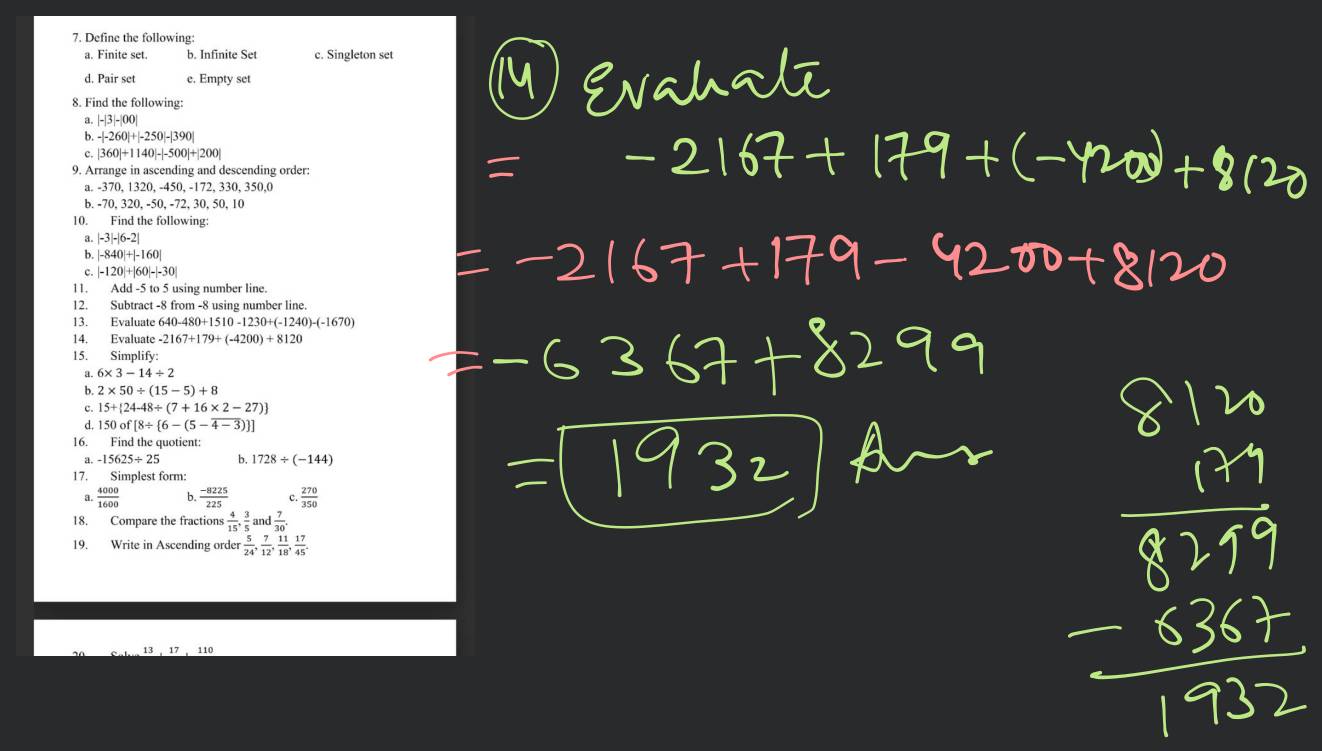 7. Define the following:
a. Finite set. b. Infinite Set c. Singleton set
d. Pair set e. Empty set
8. Find the following:
a. |-|3|-|00|
b. -|-260|+|-250|-|390|
c. |360|+1140|-|-500|+|200|
9. Arrange in ascending and descending order:
a. -370, 1320, -450, -172, 330, 350,0
b. -70, 320, -50, -72, 30, 50, 10
10. Find the following:
a. |-3|-|6-2|
b. |-840|+|-160|
c. |-120|+|60|-|-30|
11. Add -5 to 5 using number line.
12. Subtract -8 from -8 using number line.
13. Evaluate 640-480+1510 -1230+(-1240)-(-1670)
14. Evaluate -2167+179+ (-4200) + 8120
15. Simplify:
a. 6× 3 − 14 ÷ 2
b. 2 × 50 ÷ (15 − 5) + 8
c. 15+{24-48÷ (7 + 16 × 2 − 27)}
d. 150 of [8÷ {6 − (5 − 4 − 3)}]
16. Find the quotient:
a. -15625÷ 25 b. 1728 ÷ (−144)
17. Simplest form:
a. 4000/1600 b. −8225/225 c. 270/350
18. Compare the fractions 4/15, 3/5 and 7/30.
19. Write in Ascending order 5/24, 7/12, 11/18, 17/45.
13 17 110
14 Evaluate
= -2167+179+(-4200)+8120
= -2167+179-4200+8120
= -6367+8299
= 1932 Ans
8120
179
8299
- 6367
1932